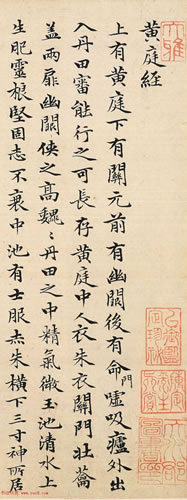 黄庭経
上有黄庭下有關元前有幽闕後有命門噓吸廬外出
入丹田審能行之可長存黄庭中人衣朱衣關門壯蘥
盖兩扉幽闕侠之髙魏〻丹田之中精氣微玉池清水上
生肥靈根堅固志不衰中池有士服赤朱横下三寸神所居